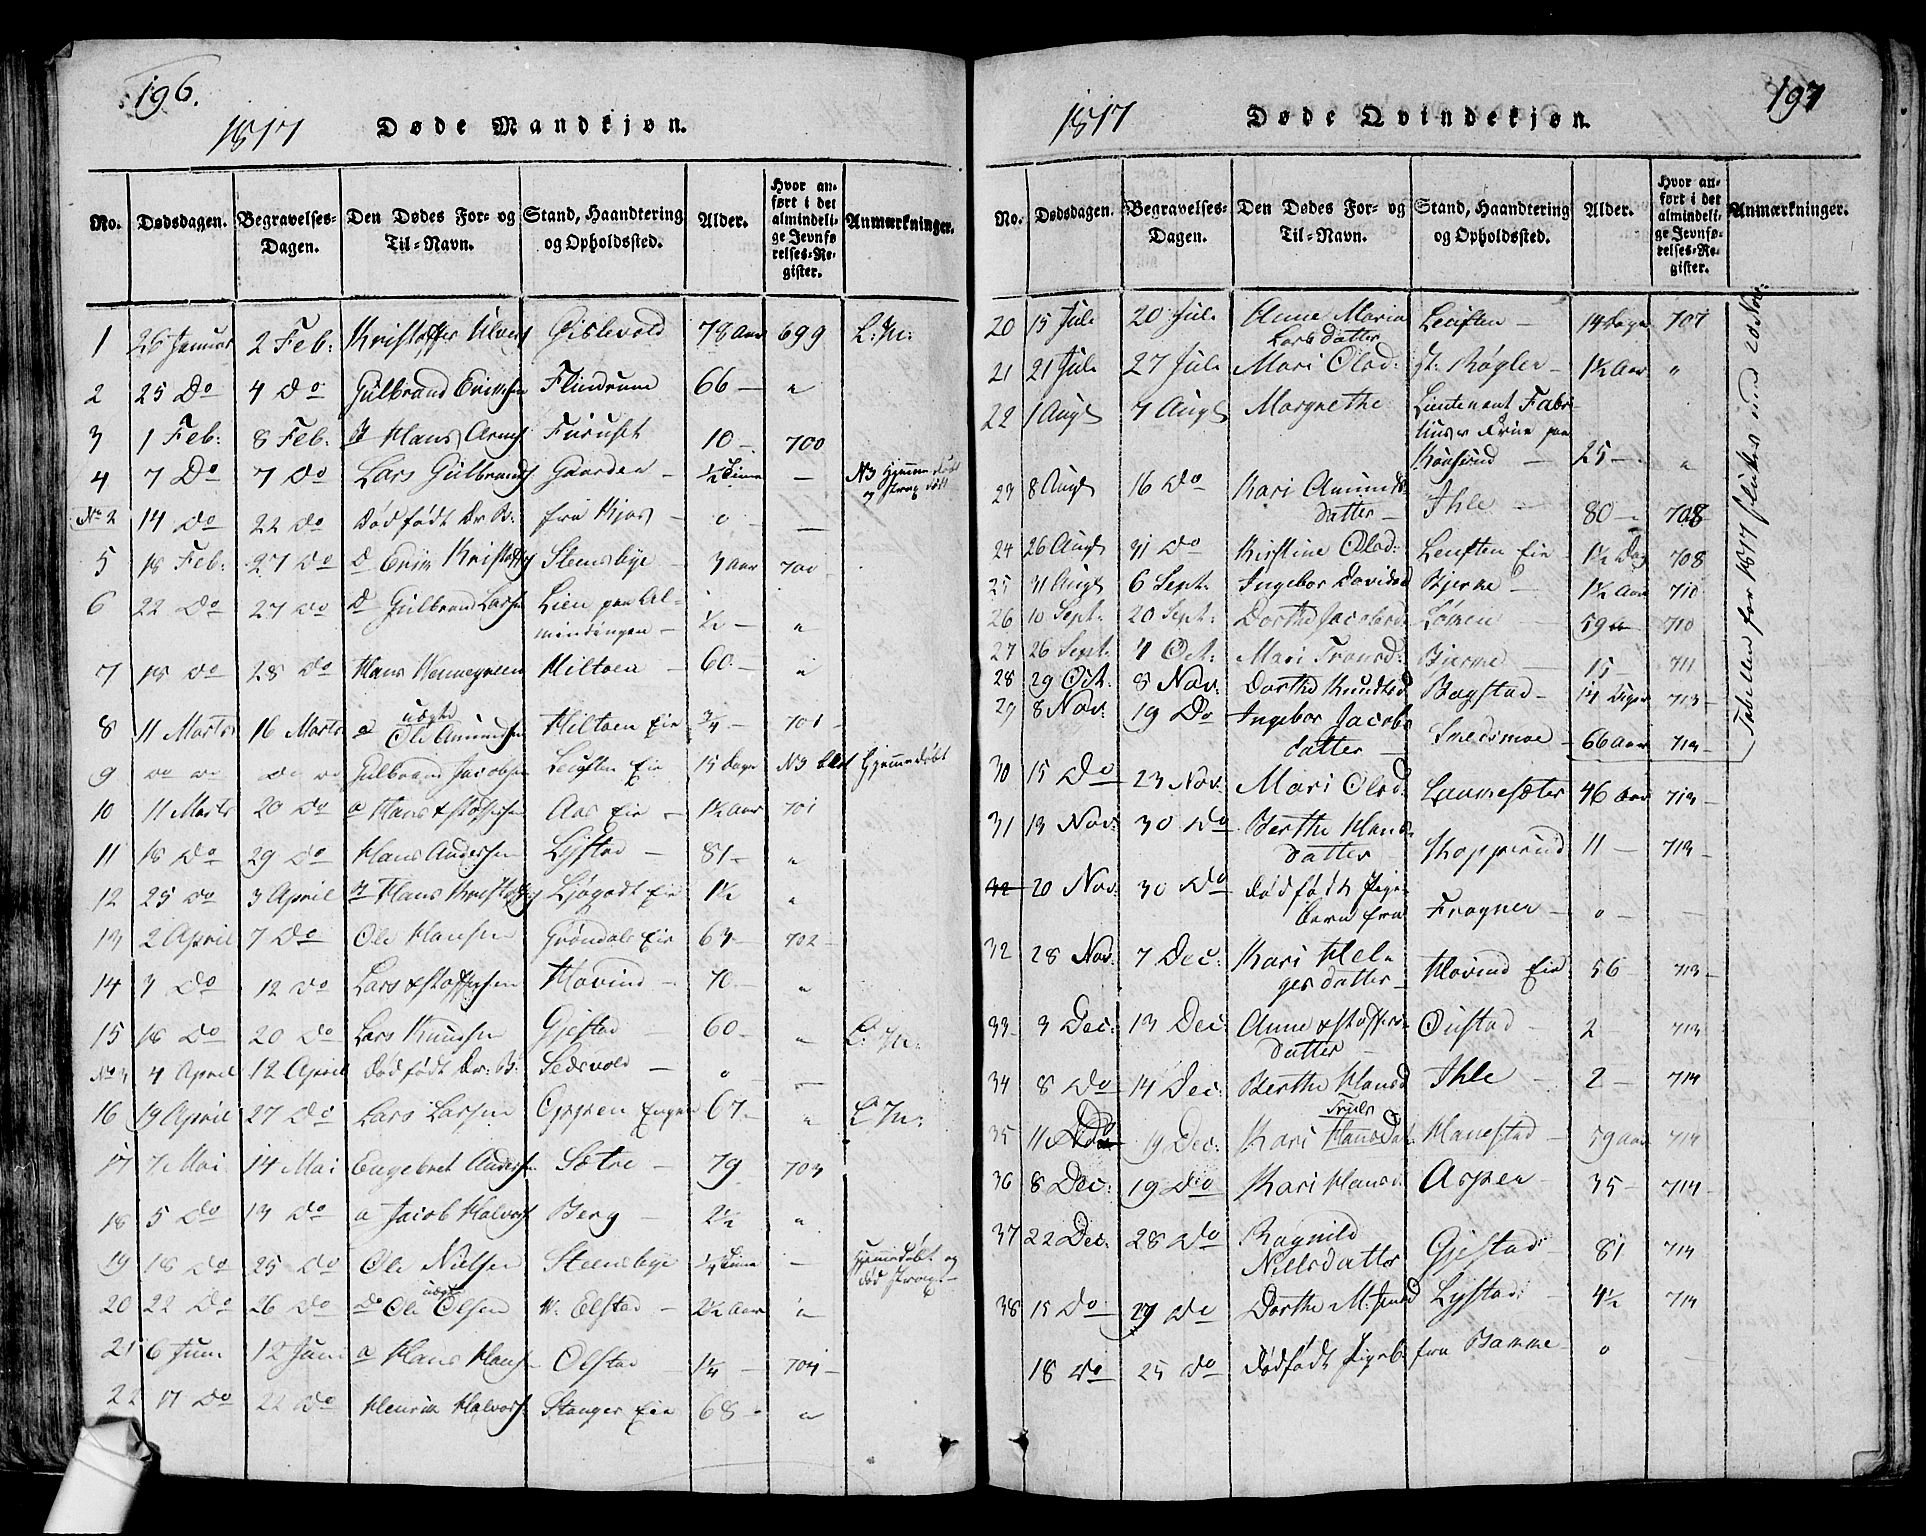 196.
1817 Døde Mandkjøn.
No. Dødsdagen. Begravelses-Dagen. Den Dødes For- og Til-Navn. Stand, Haandtering og Opholdssted. Alder. Hvor anført i det almindelige Jevnførelses-Register. Anmærkninger.
1 26 Januar 2 Feb: Kristoffer Gislevold 78 Aar 699 L:
2 25 Do 4 Do Gulbrand Erichsen Flindrum 66 — "
3 1 Feb: 8 Feb: Hans Furuset 10 — 700
4 7 Do 7 Do Lars Gulbrands Gaarder — ½ Time — N3 Hjemmedøbt
og strax død
No 2 14 Do 22 Do Dødfødt Dr. B: fra Kjos — 0 —
5 18 Feb: 27 Do D Erik Kristoff Stensbye — 3 Aar 700
6 22 Do 27 Do D Gulbrand Larsen Lien paa Al-
mindingen — ½ — "
7 18 Do 28 Do Hans Hennegveen Hiltoen — 60 — "
8 11 Marts 16 Marts a uægte Ole Amundsen Hiltoen Eie ¾ — 701
9 Do Do Do Do Gulbrand Jacobsen Leuften Eie 15 Dage N3 blot Hjemmedøbt
10 11 Marts 20 Do a Hans Kstoffersen Aas Eie — 1½ Aar 701
11 18 Do 29 Do Hans Andersen Lystad — 81 — "
12 25 Do 3 April Hans Kristoff Ljøgodt Eie 1½ "
13 2 April 7 Do Ole Hansen Grøndals Eie 63 — 702 —
14 3 Do 12 Do Lars Kstoffersen Hovind — 70 — "
15 18 Do 20 Do Lars Knudsen Gjestad — 60 — " L:
No 3 4 April 12 April Dødfødt Dr: B: Sedsvold — 0 —
16 19 April 27 Do Lars Larsen Oppen Engen 67 — " L:
17 7 Mai 14 Mai Engebret Andersen Sætre — 79 703 —
18 5 Do 13 Do a Jacob Halvors Berg — 2½ "
19 18 Do 25 Do Ole Nielsen Steensbye ¼ Time — Hjemmedøbt og
død strax —
20 22 Do 26 Do do uægte Ole Olsen N. Elstad — 2½ Aar "
21 6 Juni 12 Juni a Hans Hans Olstad 1¼ 704 —
22 17 Do 22 Do Henrik Halvors Stanger Eie 68 — "
197
1817 Døde Qvindekjøn.
No. Dødsdagen. Begravelses-Dagen. Den Dødes For- og Til-Navn. Stand, Haandtering og Opholdssted. Alder. Hvor anført i det almindelige Jevnførelses-Register. Anmærkninger.
20 15 Juli 20 Juli Anne Maria
Larsdatter Leuften — 14 Dage 707
21 21 Juli 27 Juli Mari Olsd: Røgler — 1½ Aar "
22 1 Augt 7 Augt Margrethe Lieutenant Fabri-
tiuses paa
— 25 — "
23 8 Augt 16 Do Kari Amunds-
datter — Ihle — 80 — 708
24 26 Augt 31 Do Kirstine Olsd: Leuften Eie 1½ Dag 708
25 31 Augt 6 Sept: Ingebor Davidsd Bjerke — 1½ Aar 710
26 10 Sept: 20 Sept: Dorthe Jacobsd Lømen 59 — 710
27 26 Sept: 4 Oct: Mari Fransd: Bjerke — 15 — 711
28 29 Oct: 8 Nov: Dorthe Knudsd Bogstad — 14 Uger 713 —
29 8 Nov: 19 Do Ingebor Jacobs-
datter — Smedsmoe — 66 Aar 713 —
30 15 Do 23 Nov: Mari Olsd: Lunnesæter 46 Aar 713 —
31 13 Nov: 30 Do Berthe Hans-
datter — Kopperud 11 — 713 —
32 20 Nov: 30 Do Dødfødt Pige-
barn fra Frogner — 0 — —
32 28 Nov: 7 Dec: Kari Hel-
gesdatter — Hovind Eie 56 — 713 —
33 3 Dec: 13 Dec: Anne Kstoffers-
datter — Ouistad — 2 — 713
34 8 Do 14 Dec: Berthe Hansd Ihle — 2 — 714
35 11 Do 19 Dec: Kari Truls Hansdat. Hanestad — 59 Aar 714
36 8 Dec: 19 Do Kari Hansd Asper — 35 — 714 —
37 22 Dec: 28 Do Ragnild
Nielsdatter Gjestad: 81 714
38 15 Do 29 Do Dorthe M. Jensd Lystad: — 4½ 714
18 Do 25 Do Dødfødt Pigeb: fra Bamme — 0 —
Tabellen for 1817 sluttes med 20 Nov: